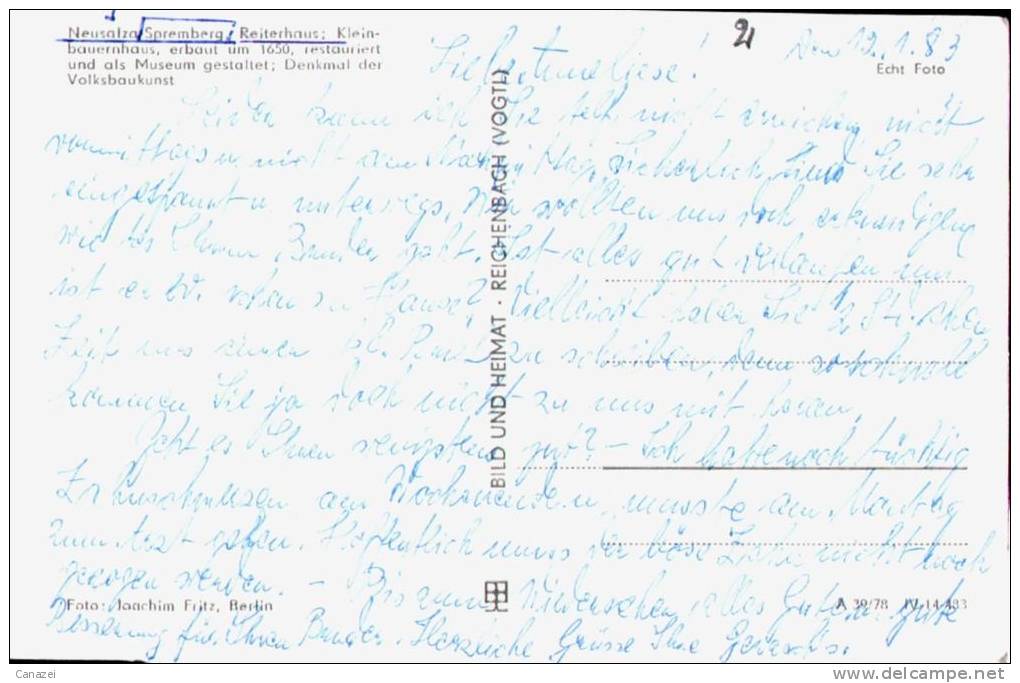 Neusalza-Spremberg, Reiterhaus; Klein-
bauernhaus, erbaut um 1650, restauriert
und als Museum gestaltet; Denkmal der
Volksbaukunst
Echt Foto
den 12.1.83
Liebe Anneliese!
Leider kann ich Sie telf. nicht erreichen, nicht
vormittags u. nicht am Nachmittag, sicherlich sind Sie sehr
eingespannt u. unterwegs. Wir wollten uns doch erkundigen,
wie es Ihrem Bruder geht. Ist alles gut verlaufen und
ist er schon zu Hause? Vielleicht haben Sie 1/2 Stündchen
Zeit uns einen zu schreiben, denn so schnell
kommen Sie ja doch nicht zu uns mit
Geht es Ihnen wenigstens gut? – Ich habe noch tüchtig
Zahnschmerzen am Wochenende u. musste am Montag
zum Arzt gehen. Hoffentlich muss der böse Zahn nicht noch
gezogen werden. – Bis zum Wiedersehen alles Gute u. gute
Besserung für Ihren Bruder. Herzliche Grüsse Ihre
BILD UND HEIMAT · REICHENBACH (VOGTL)
Foto: Joachim Fritz, Berlin
A 39/78 IV-14-483
Canazei
delcampe.net